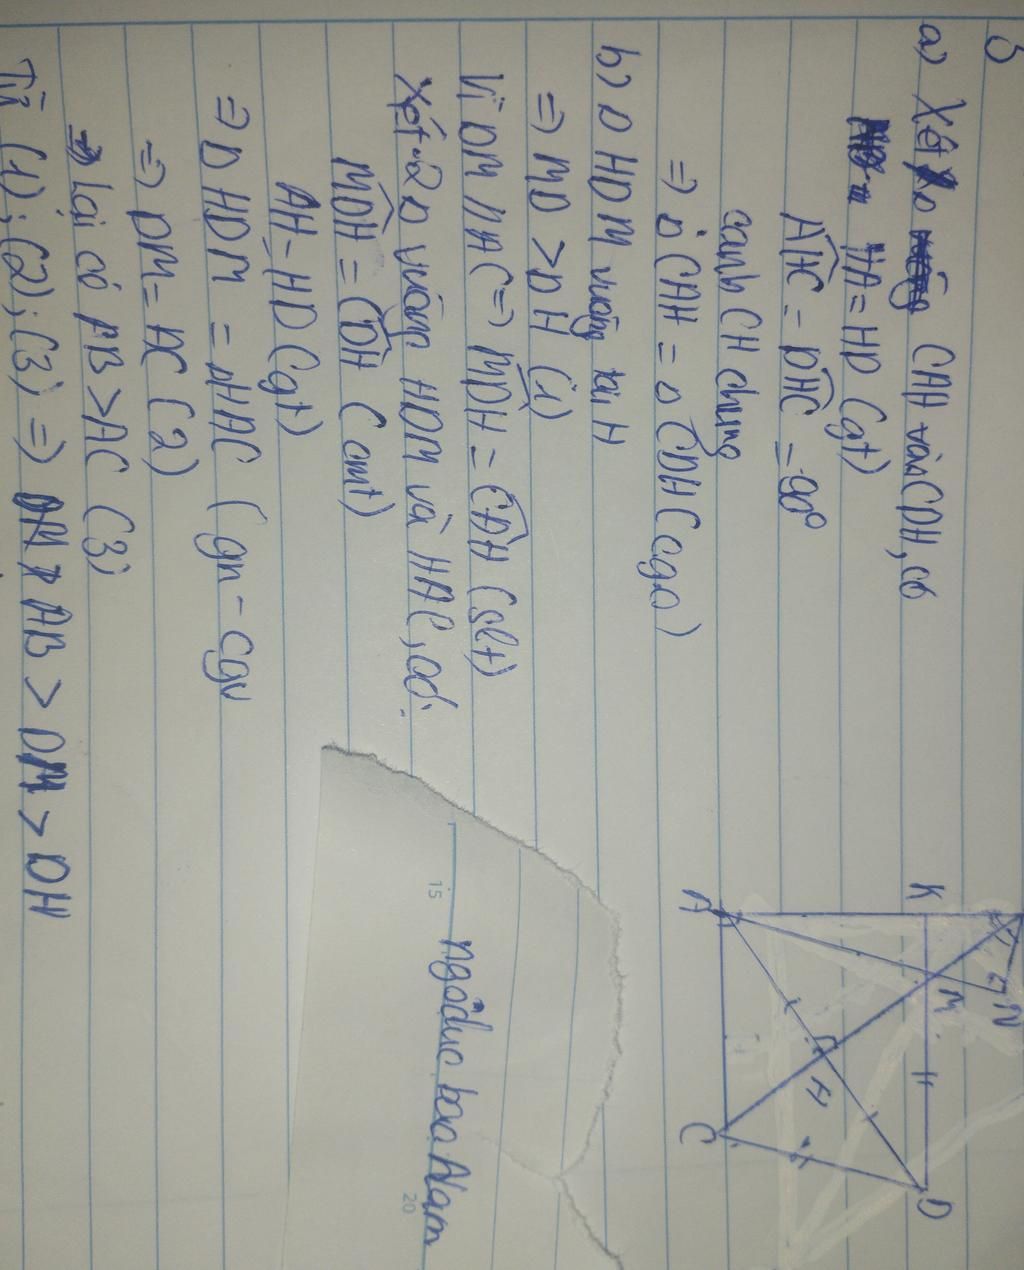 a) Xét Δ CAH và CDH, có
HA = HD (gt)
AHC = DHC = 90°
cạnh CH chung
=> Δ CAH = Δ CDH (cgc)
b) Δ HDM vuông tại H
=> MD > DH (1)
Vì DM // AC => MDH = CAH (slt)
Xét 2 Δ vuông HDM và HAC, có:
MDH = CDH (cmt)
AH = HD (gt)
=> Δ HDM = ΔHAC (gn - cgv
=> DM = AC (2)
Lại có AB > AC (3)
Từ (1); (2); (3) => AB > DM > DH
K
A
N
M
H
C
D
15
ngọc bảo Nam
20